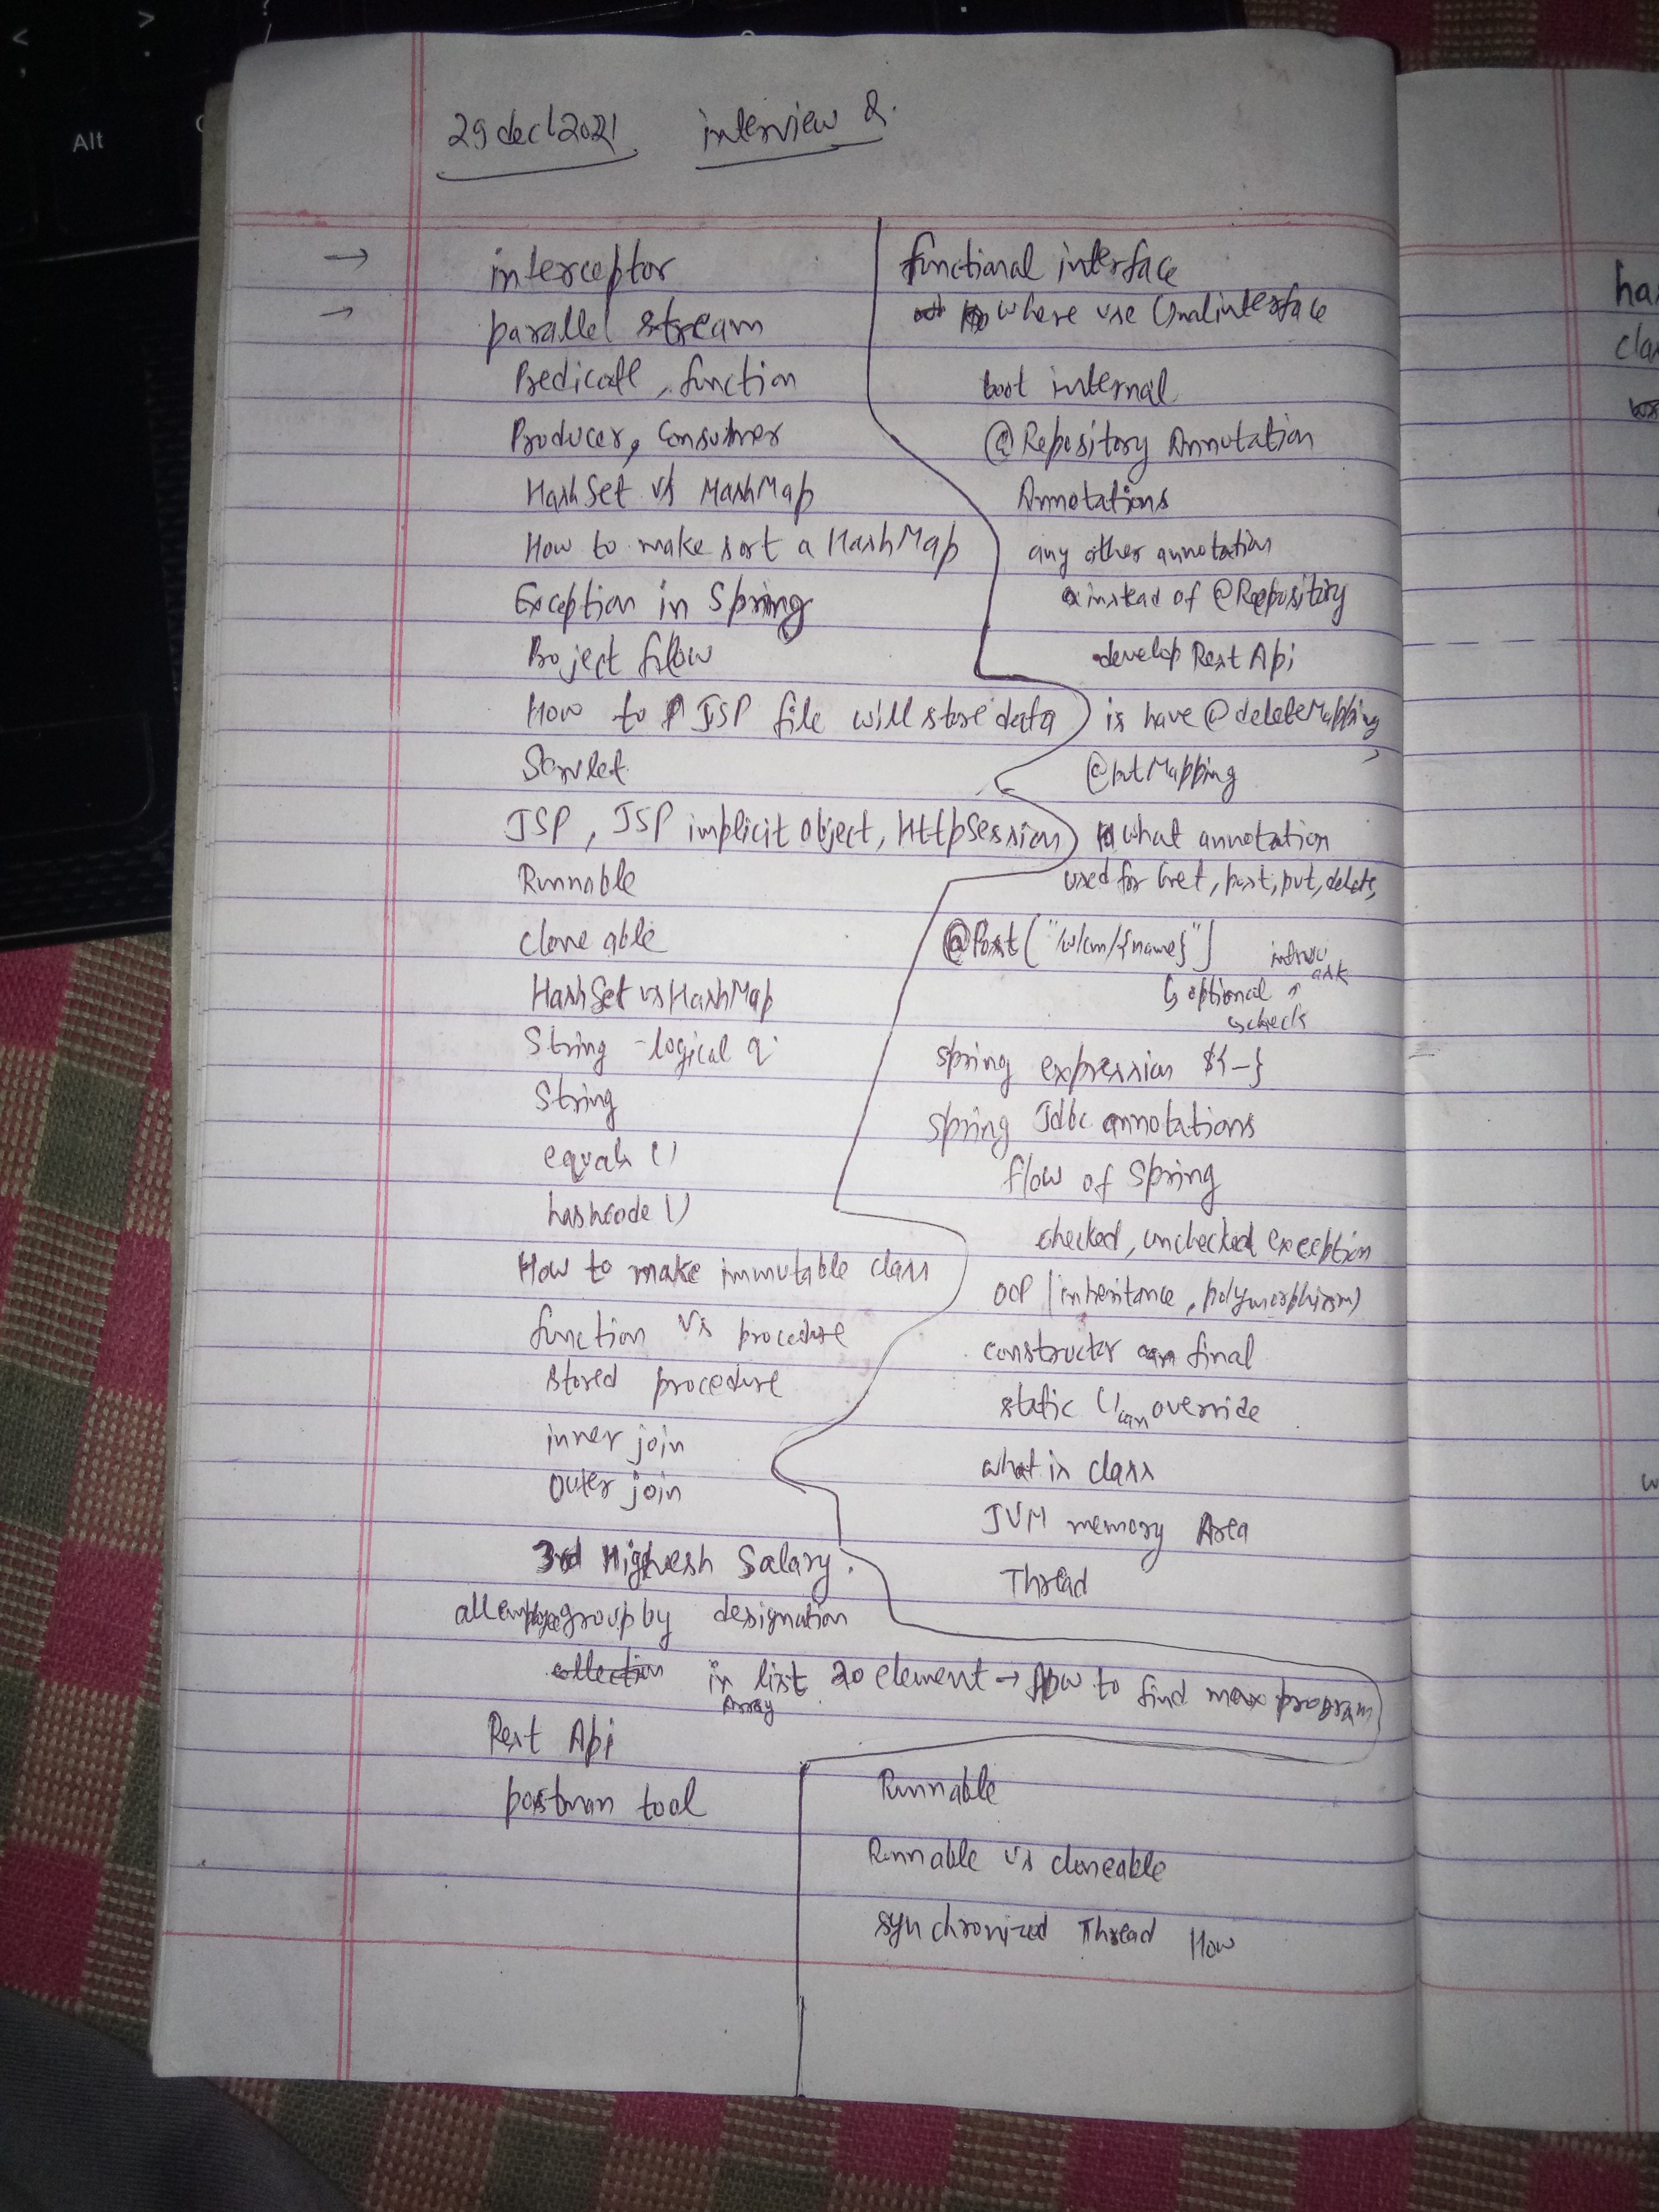 Alt
29 dec 2021 interview Q.
→ interceptor
→ parallel stream
Predicate, function
Producer, Consumer
HashSet vs HashMap
How to make sort a HashMap
Exception in Spring
Project flow
How to JSP file will store data
Servlet
JSP, JSP implicit object, HttpSession
Runnable
clone able
HashSet vs HashMap
String - logical q.
String
equals ()
hashcode ()
How to make immutable class
function vs procedure
stored procedure
inner join
outer join
3rd Highesh Salary.
all employee group by designation
collection in list 20 element → How to find max program
Array
Rest Api
postman tool
functional interface
where use (nalinterface
boot internal
@Repository Annotation
Annotations
any other annotation
instead of @Repository
develop Rest Api
is have @deleteMapping,
@putMapping
what annotation
used for Get, post, put, delete,
@Post("/wlcm/{name}")
ask
↳ optional
↳ check
spring expression ${-}
spring Jdbc annotations
flow of Spring
checked, unchecked exception
OOP (inheritance, polymorphism)
constructor can final
static () can override
what is class
JVM memory Area
Thread
Runnable
Runnable vs cloneable
synchronized Thread How
ha
cla